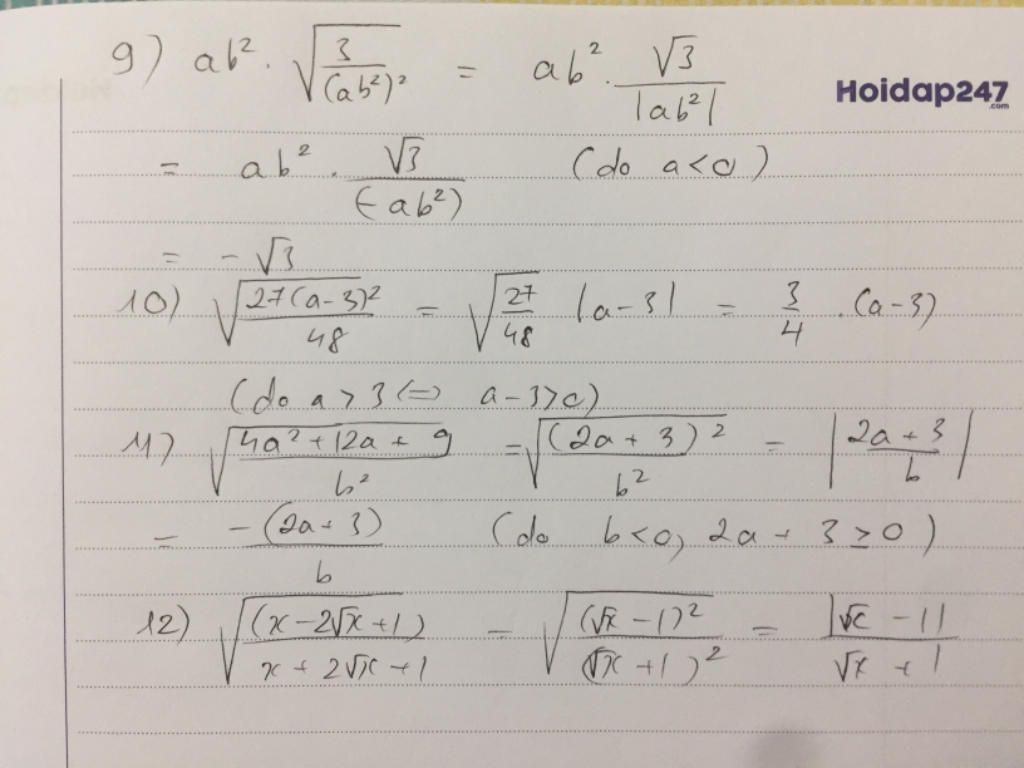 9) ab² . √(3/(ab²)²) = ab² . √3/|ab²|
Hoidap247
.com
= ab² . √3/(-ab²) (do a<0)
= -√3
10) √(27(a-3)²/48) = √(27/48) |a-3| = 3/4 .(a-3)
(do a>3 <=> a-3>0)
11) √((4a²+12a+9)/b²) = √((2a+3)²/b²) = |(2a+3)/b|
= -(2a+3)/b (do b<0, 2a+3≥0)
12) √((x-2√x+1)/(x+2√x+1)) = √((√x-1)²/(√x+1)²) = |√x-1|/(√x+1)